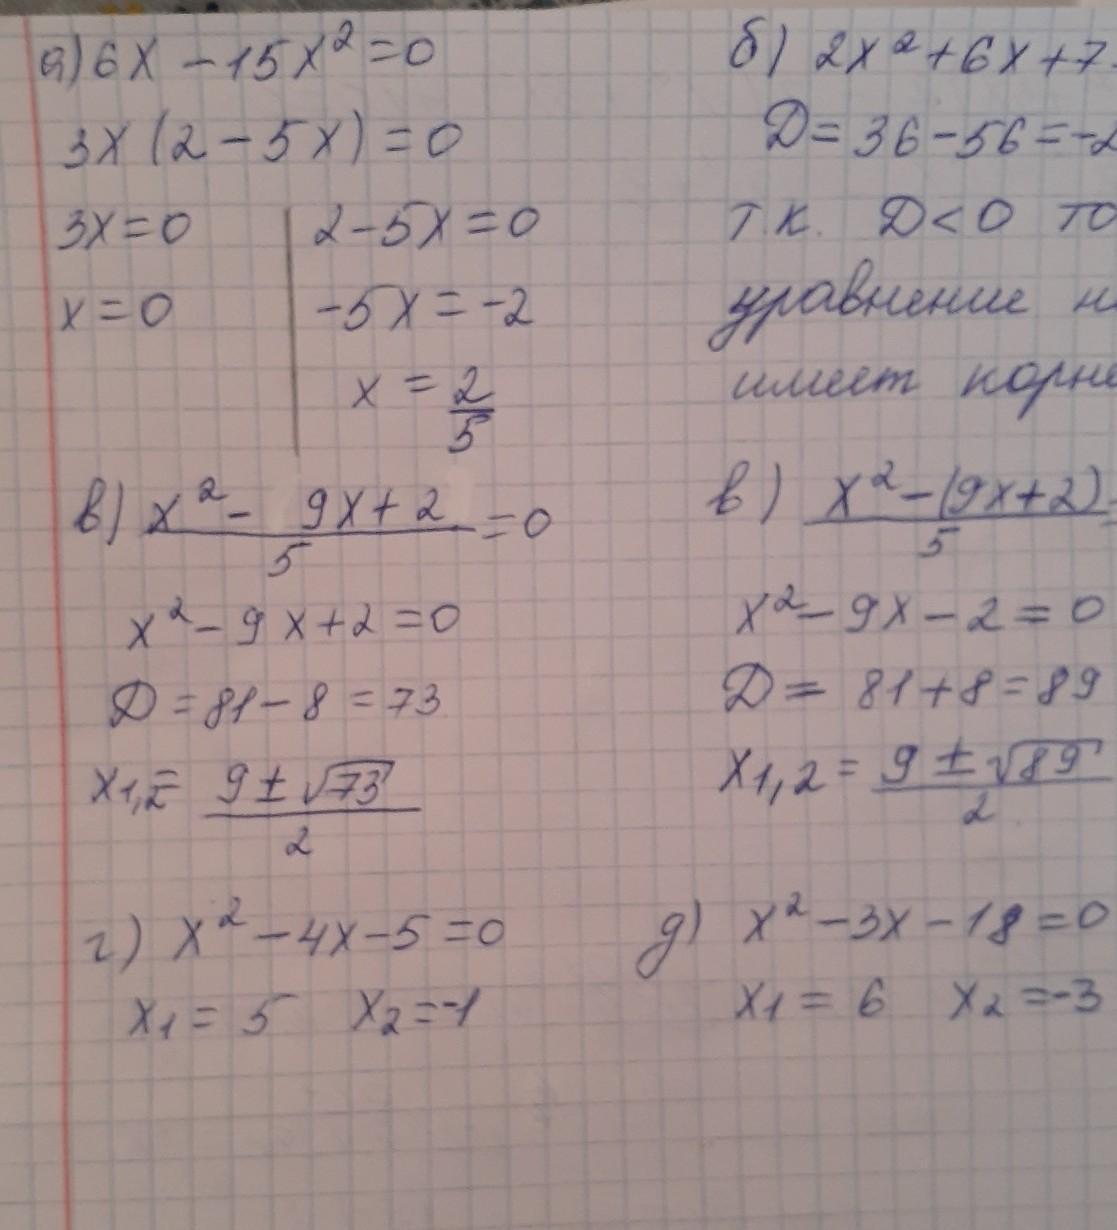 а) 6x - 15x² = 0
3x (2 - 5x) = 0
3x = 0 | 2 - 5x = 0
x = 0 | -5x = -2
x = 2/5
б) 2x² + 6x + 7
D = 36 - 56 = -2
т.к. D < 0 то
уравнение н
имеет корне
в) (x² - 9x + 2)/5 = 0
x² - 9x + 2 = 0
D = 81 - 8 = 73
x1,2 = (9 ± √73)/2
в) (x² - (9x + 2))/5
x² - 9x - 2 = 0
D = 81 + 8 = 89
x1,2 = (9 ± √89)/2
г) x² - 4x - 5 = 0
x1 = 5 x2 = -1
д) x² - 3x - 18 = 0
x1 = 6 x2 = -3